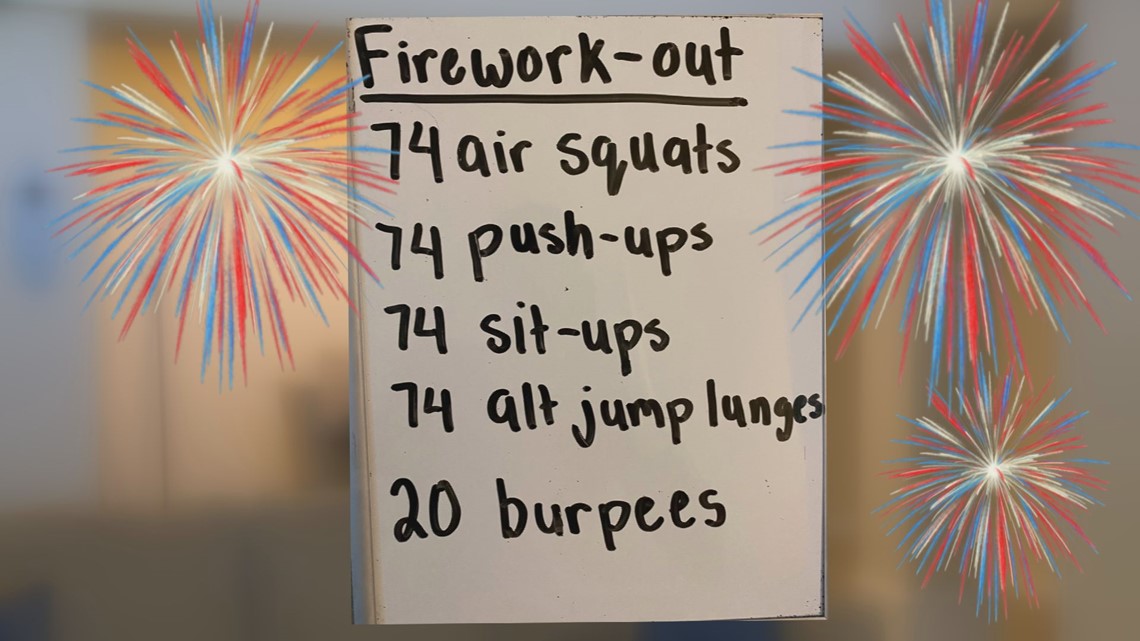 Firework-out
74 air squats
74 push-ups
74 sit-ups
74 alt jump lunges
20 burpees